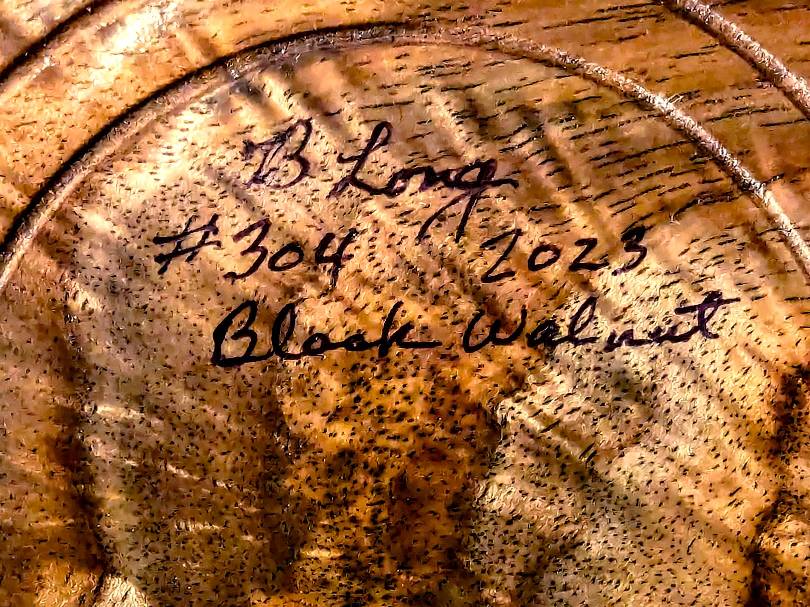 B Long
#304 2023
Black Walnut